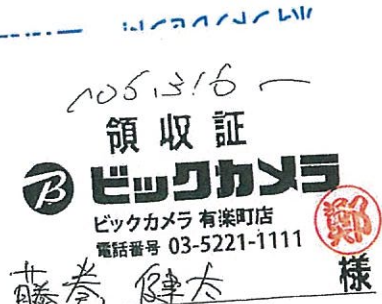 105,316 —
領収証
B ビックカメラ
ビックカメラ 有楽町店
電話番号 03-5221-1111
鄭
藤巻 健太 様